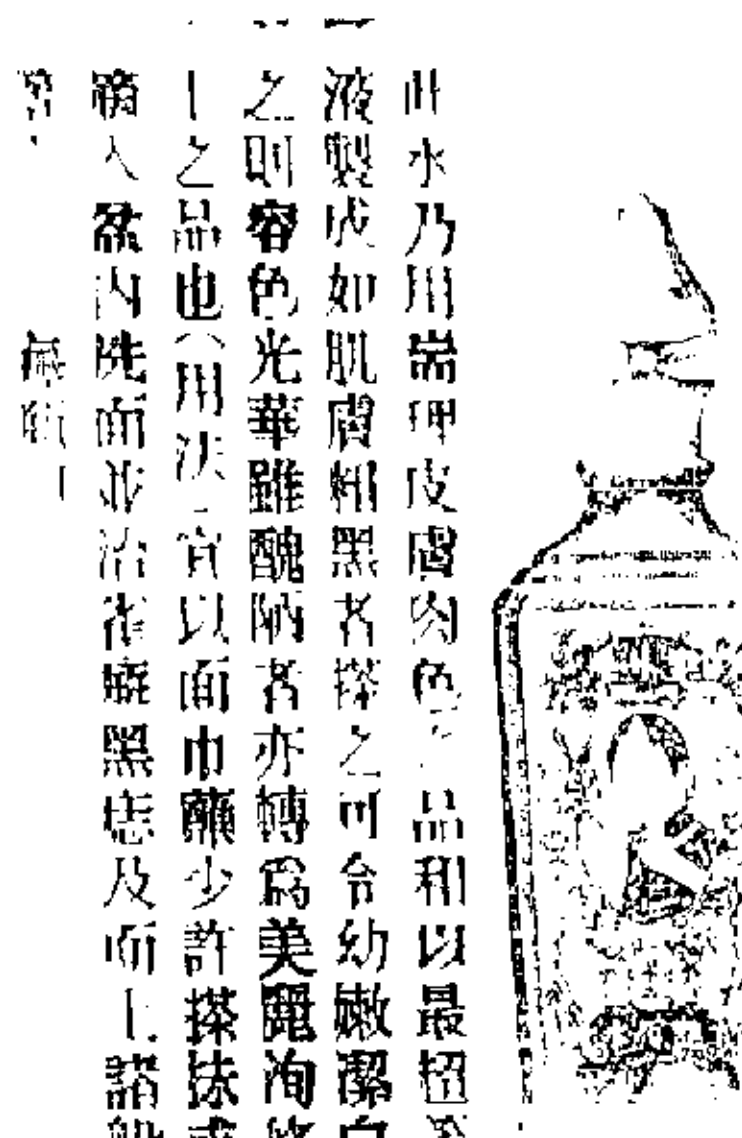 此水乃用耑理皮膚肉色之品和以最超等
液製成如肌膚粗黑者搽之可令幼嫩潔白
之則容色光華雖醜陋者亦轉為美麗洵
上之品也（用法）宜以面巾蘸少許搽抹或
滴入盆內洗面並治雀癍黑痣及面上諸般